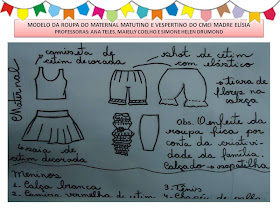 MODELO DA ROUPA DO MATERNAL MATUTINO E VESPERTINO DO CMEI MADRE ELÍSIA
PROFESSORAS: ANA TELES, MAIELLY COELHO E SIMONE HELEN DRUMOND
Maternal
camiseta de
cetim decorada
short de cetim
com elástico
+ tiara de
flores na
cabeça
saia de
cetim decorada
Obs. O enfeite da
roupa fica por
conta da criativi-
dade da família.
Calçado → sapatilha
Meninos
1- Calça branca
2- Camisa vermelha de cetim
3- Tênis
4- Chapéu de